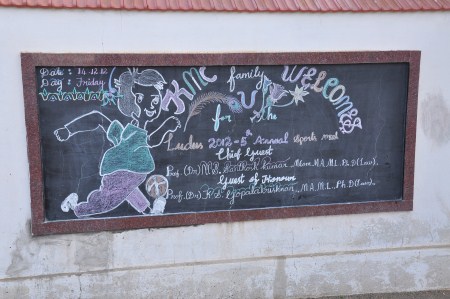 Date : 14.12.12
Day : Friday
KMC family WELCOMES
YOU
for the
Ludus 2012-5th Annual Sports meet
Chief Guest
Prof. (Dr)
Guest of Honour
Prof. (Dr) K.S. Gopalakrishnan, M.A, M.L, Ph.D (Law).